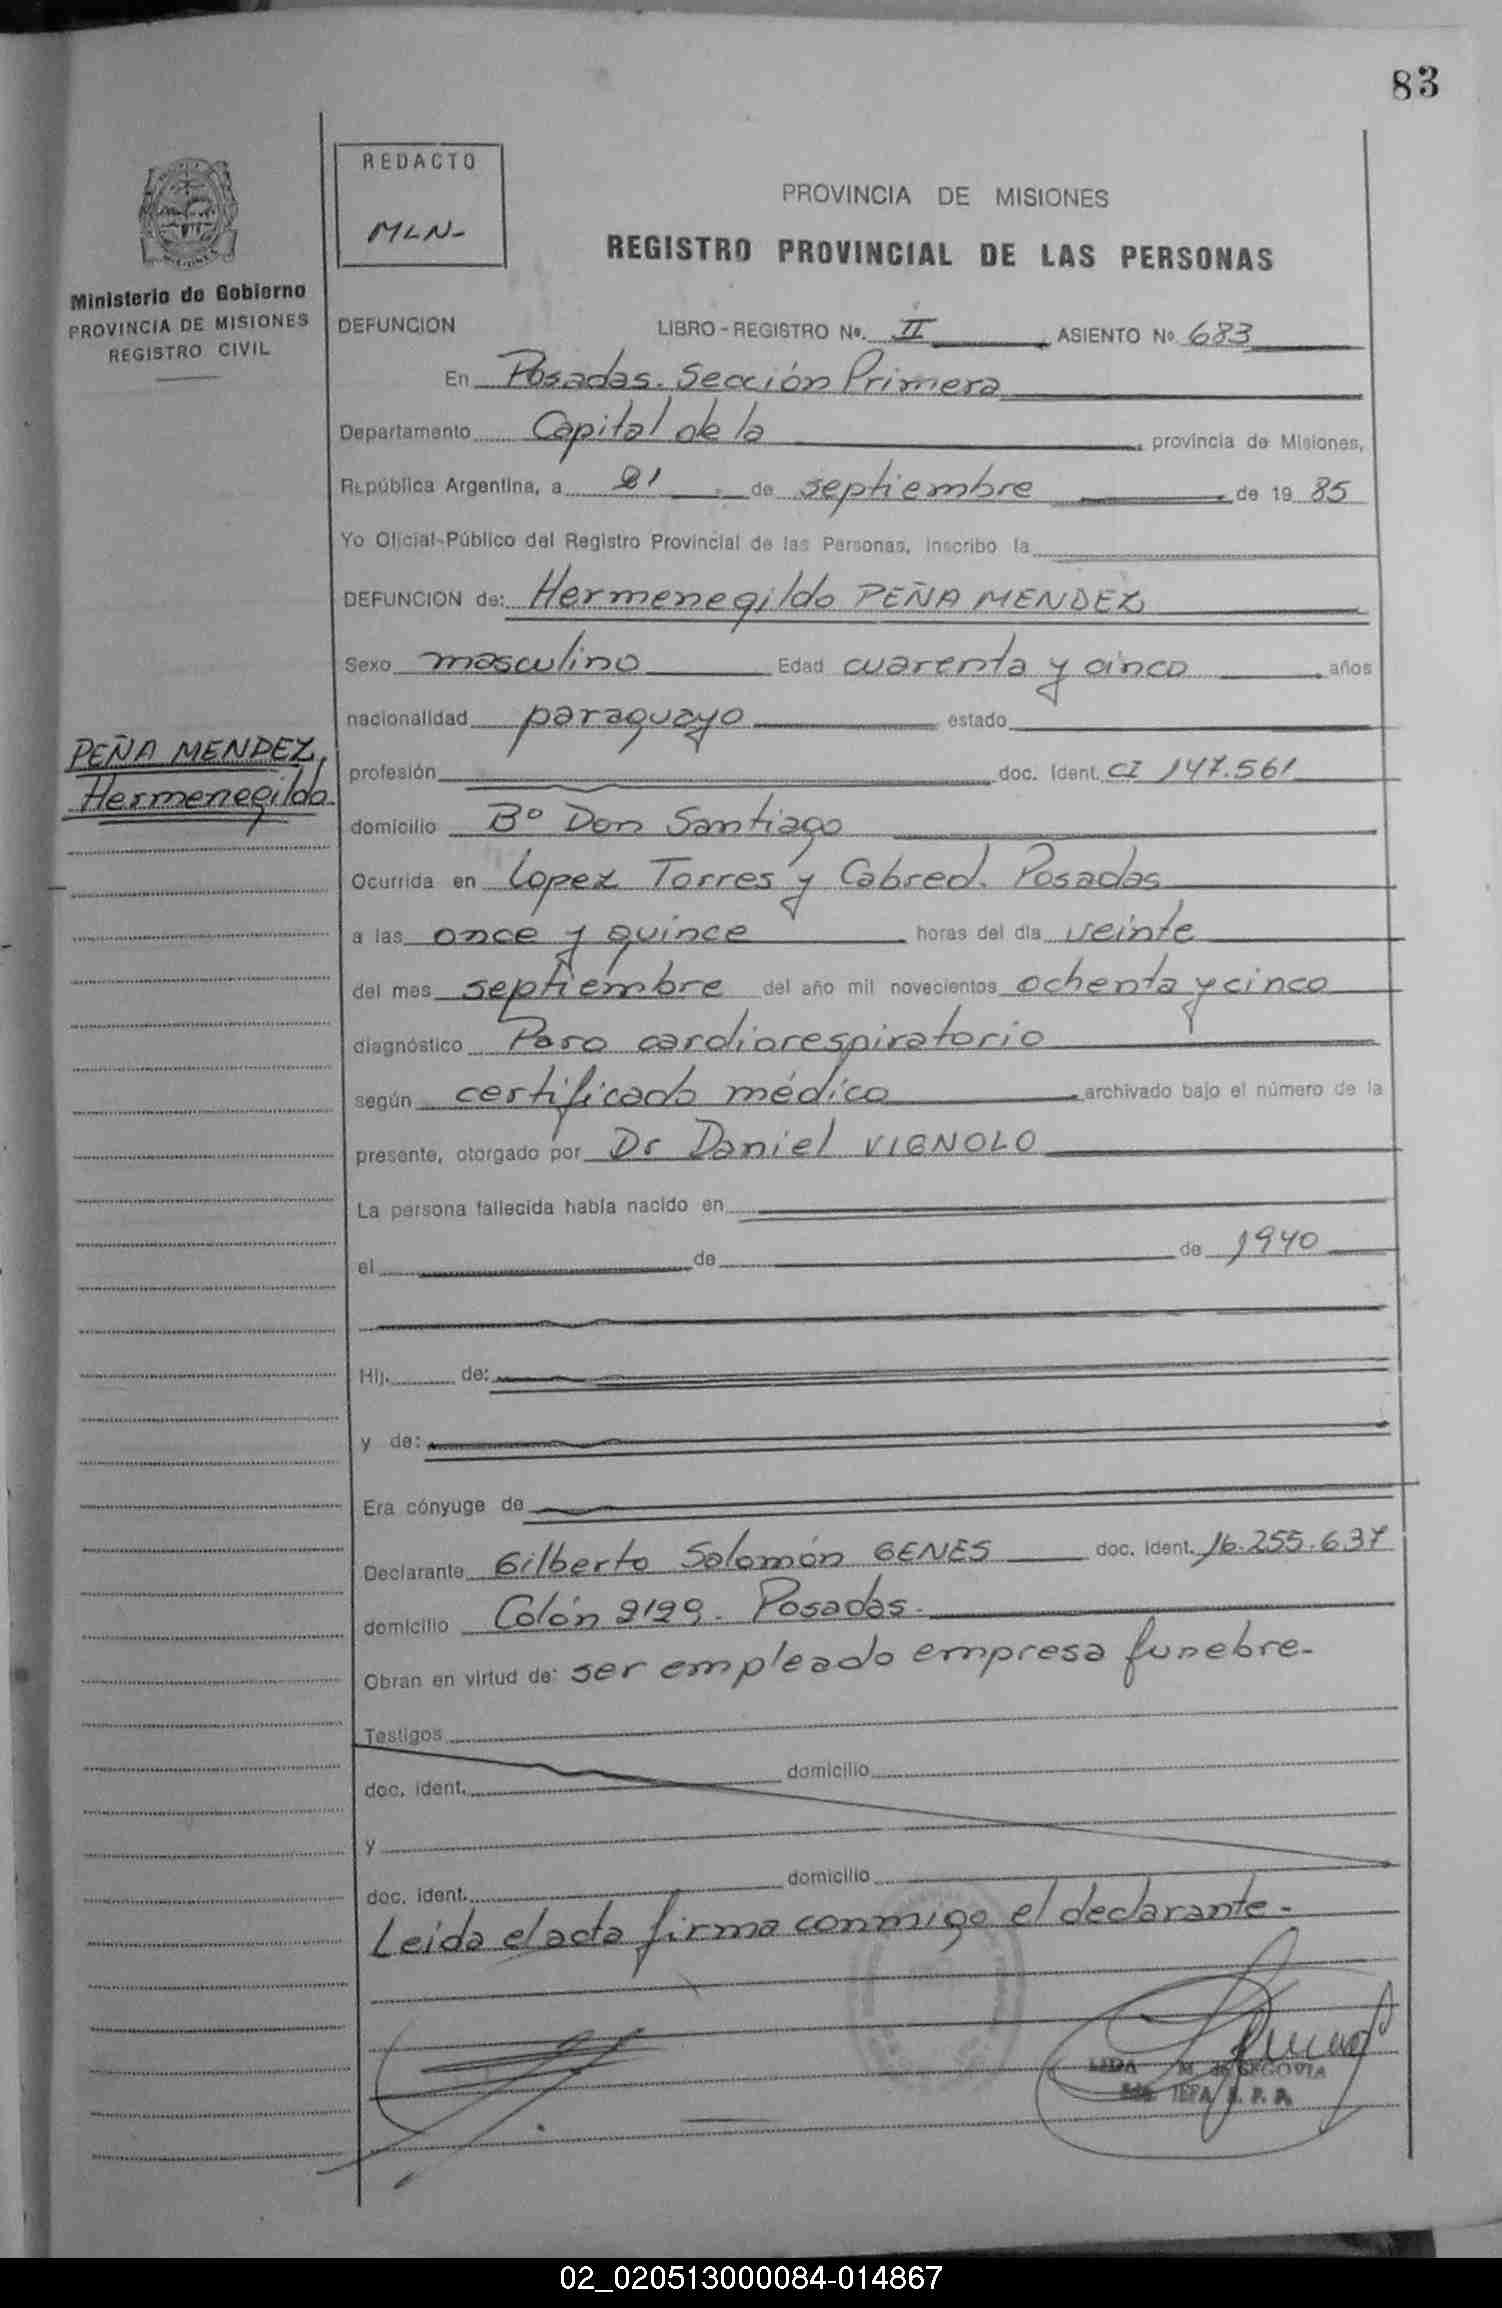 83
REDACTO
MLN-
PROVINCIA DE MISIONES
REGISTRO PROVINCIAL DE LAS PERSONAS
Ministerio de Gobierno
PROVINCIA DE MISIONES
REGISTRO CIVIL
DEFUNCION LIBRO-REGISTRO Nº. II, ASIENTO Nº 683
En Posadas. Sección Primera
Departamento Capital de la, provincia de Misiones,
República Argentina, a 21 de septiembre de 1985
Yo Oficial-Público del Registro Provincial de las Personas, inscribo la
DEFUNCION de: Hermenegildo PEÑA MENDEZ
Sexo masculino Edad cuarenta y cinco años
nacionalidad paraguayo estado
PEÑA MENDEZ,
Hermenegildo
profesión doc. ident. CI 147.561
domicilio Bº Don Santiago
Ocurrida en Lopez Torres y Cabred. Posadas
a las once y quince horas del día veinte
del mes septiembre del año mil novecientos ochenta y cinco
diagnóstico Paro cardiorespiratorio
según certificado médico archivado bajo el número de la
presente, otorgado por Dr Daniel VIGNOLO
La persona fallecida había nacido en
el de de 1940
Hij. de:
y de:
Era cónyuge de
Declarante Gilberto Salomón GENES doc. ident. 16.255.637
domicilio Colón 2129. Posadas.
Obran en virtud de: ser empleado empresa funebre.
Testigos
doc. ident. domicilio
y
doc. ident. domicilio
Leida el acta firma conmigo el declarante.
LIDA M. de SEGOVIA
02_020513000084-014867